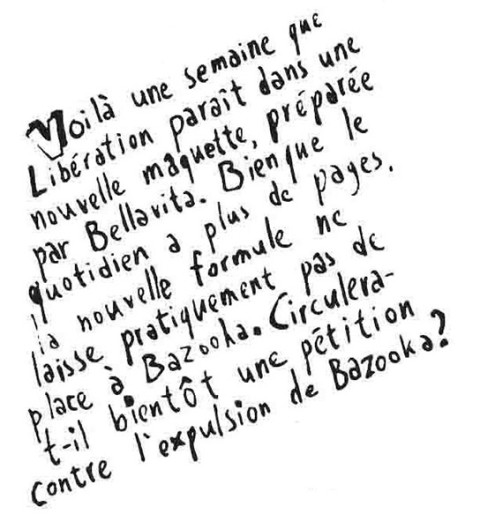 Voilà une semaine que
Libération paraît dans une
nouvelle maquette, préparée
par Bellavita. Bien que le
quotidien a plus de pages.
la nouvelle formule ne
laisse pratiquement pas de
place à Bazooka. Circulera-
t-il bientôt une pétition
contre l'expulsion de Bazooka?